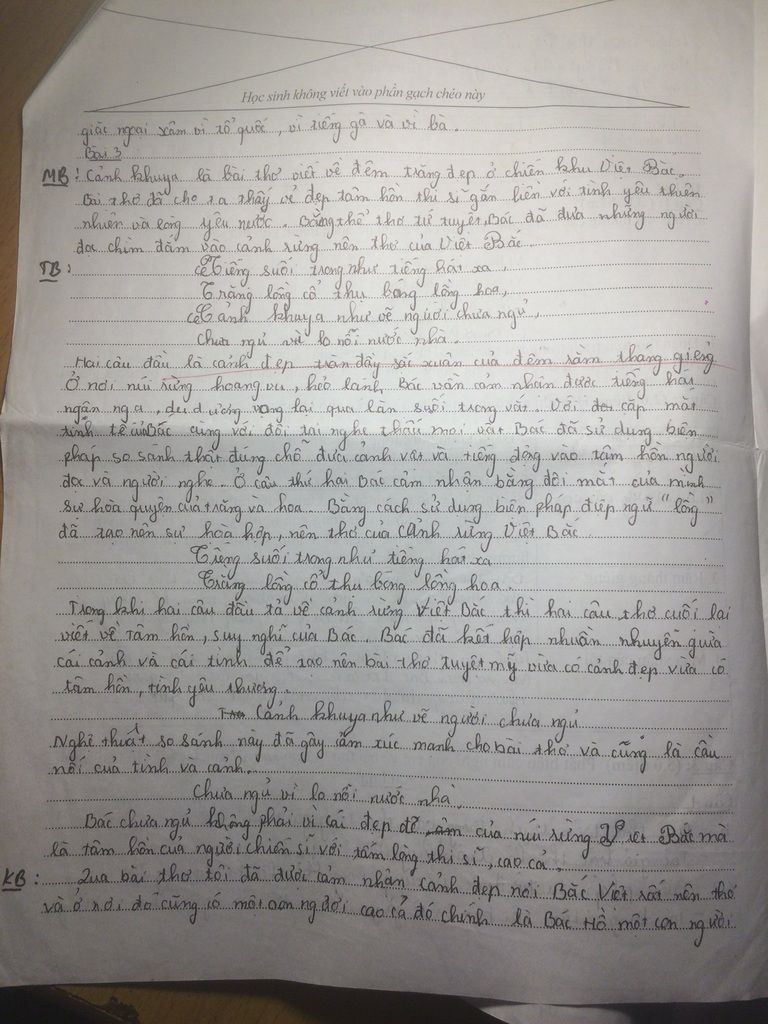 Học sinh không viết vào phần gạch chéo này
giặc ngoại xâm vì tổ quốc, vì tiếng gà và vì bà.
Bài 3
MB: Cảnh khuya là bài thơ viết về đêm trăng đẹp ở chiến khu Việt Bắc.
Bài thơ đã cho ta thấy vẻ đẹp tâm hồn thi sĩ gắn liền với tình yêu thiên
nhiên và lòng yêu nước. Bằng thể thơ tứ tuyệt, Bác đã đưa những người
đọc chìm đắm vào cảnh rừng nên thơ của Việt Bắc.
TB: Tiếng suối trong như tiếng hát xa,
Trăng lồng cổ thụ bóng lồng hoa,
Cảnh khuya như vẽ người chưa ngủ,
Chưa ngủ vì lo nỗi nước nhà.
Hai câu đầu là cảnh đẹp tràn đầy sắc xuân của đêm rằm tháng giêng
Ở nơi núi rừng hoang vu, hẻo lánh, Bác vẫn cảm nhận được tiếng hát
ngân nga, du dương vang lại qua làn suối trong vắt. Với cặp mắt
tinh tế của Bác cùng với đôi tai nghe thấu mọi vật Bác đã sử dụng biện
pháp so sánh thật đúng chỗ đưa cảnh vật và tiếng động vào tâm hồn người
đọc và người nghe. Ở câu thứ hai Bác cảm nhận bằng đôi mắt của mình
sự hòa quyện của trăng và hoa. Bằng cách sử dụng biện pháp điệp ngữ "lồng"
đã tạo nên sự hoà hợp, nên thơ của cảnh rừng Việt Bắc.
Tiếng suối trong như tiếng hát xa
Trăng lồng cổ thụ bóng lồng hoa.
Trong khi hai câu đầu tả về cảnh rừng Việt Bắc thì hai câu thơ cuối lại
viết về tâm hồn, suy nghĩ của Bác. Bác đã kết hợp nhuần nhuyễn giữa
cái cảnh và cái tình để tạo nên bài thơ tuyệt mỹ vừa có cảnh đẹp vừa có
tâm hồn, tình yêu thương.
Cảnh khuya như vẽ người chưa ngủ
Nghệ thuật so sánh này đã gây ấm xúc mạnh cho bài thơ và cũng là cầu
nối của tình và cảnh.
Chưa ngủ vì lo nỗi nước nhà.
Bác chưa ngủ không phải vì cái đẹp của núi rừng Việt Bắc mà
là tâm hồn của người chiến sĩ với tấm lòng thi sĩ, cao cả.
KB: Qua bài thơ tôi đã được cảm nhận cảnh đẹp nơi Bắc Việt rất nên thơ
và ở nơi đó cũng có một con người cao cả đó chính là Bác Hồ một con người